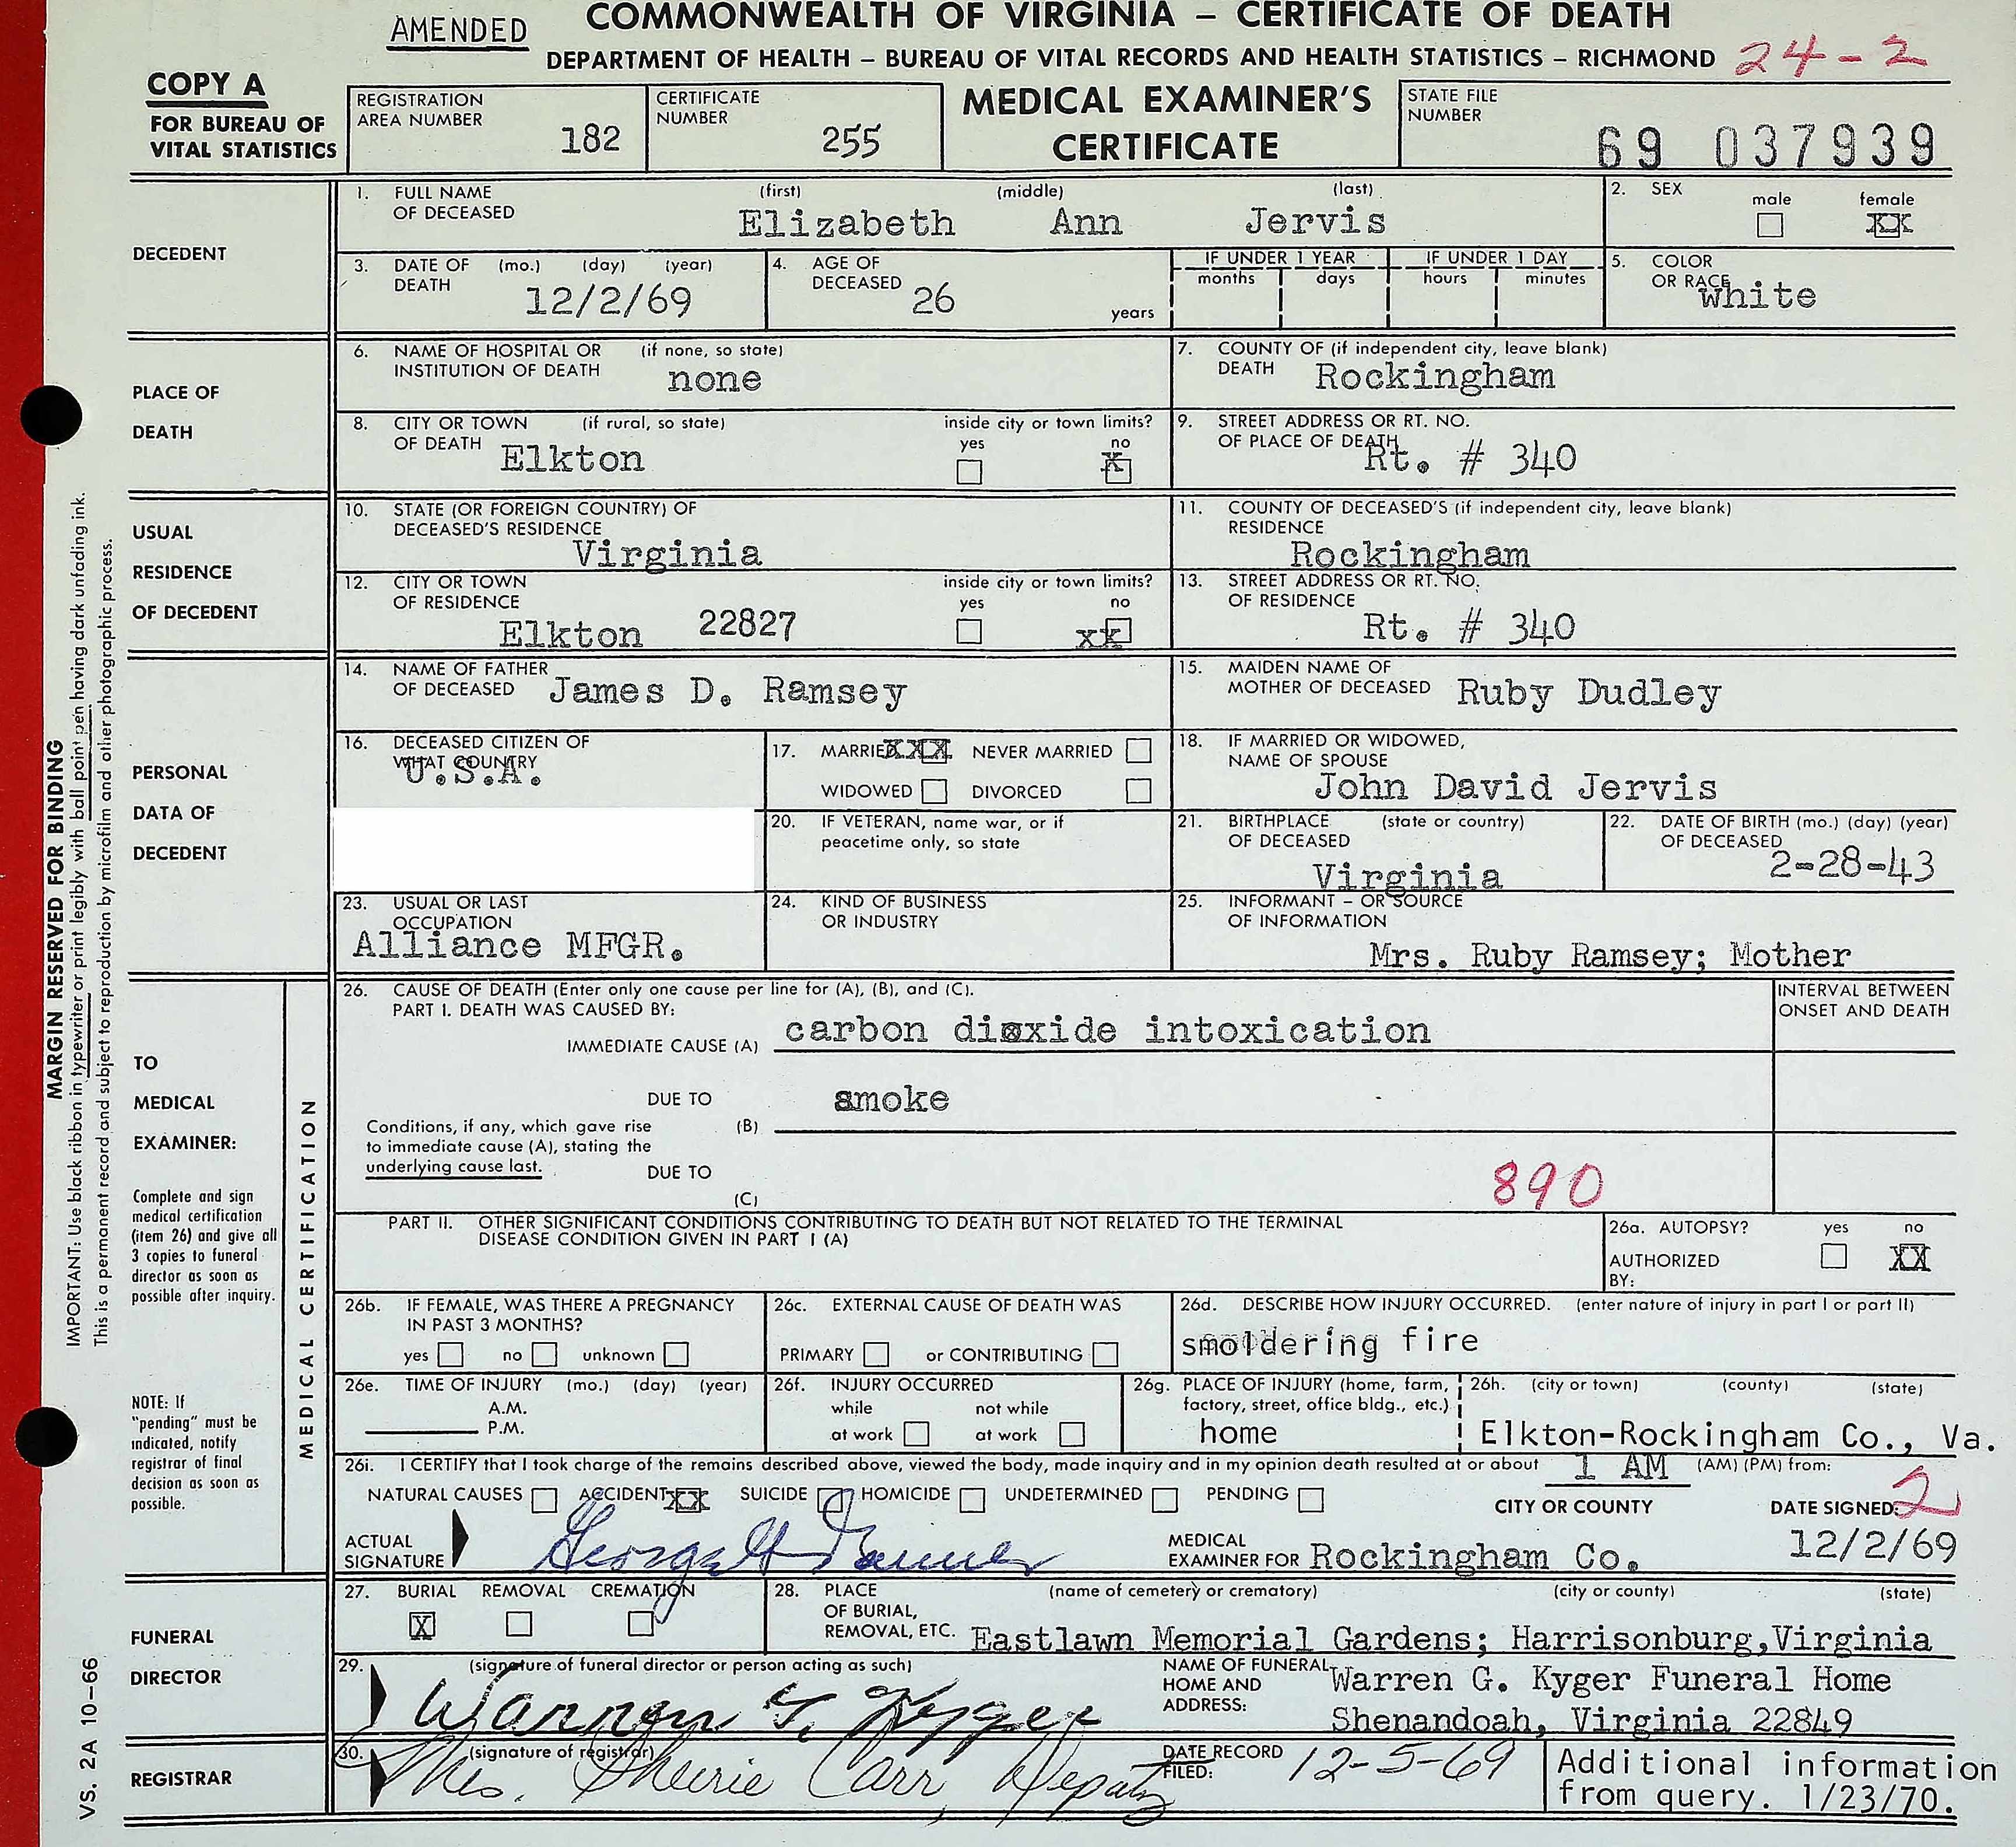 AMENDED
COMMONWEALTH OF VIRGINIA – CERTIFICATE OF DEATH
DEPARTMENT OF HEALTH – BUREAU OF VITAL RECORDS AND HEALTH STATISTICS – RICHMOND 24-2
COPY A
FOR BUREAU OF
VITAL STATISTICS
REGISTRATION
AREA NUMBER 182
CERTIFICATE
NUMBER 255
MEDICAL EXAMINER'S
CERTIFICATE
STATE FILE
NUMBER
69 037939
DECEDENT
1. FULL NAME (first) (middle) (last)
OF DECEASED
Elizabeth Ann Jervis
2. SEX
male female
XX
3. DATE OF (mo.) (day) (year)
DEATH
12/2/69
4. AGE OF
DECEASED 26
years
IF UNDER 1 YEAR IF UNDER 1 DAY
months days hours minutes
5. COLOR
OR RACE
white
PLACE OF
DEATH
6. NAME OF HOSPITAL OR (if none, so state)
INSTITUTION OF DEATH none
7. COUNTY OF (if independent city, leave blank)
DEATH Rockingham
8. CITY OR TOWN (if rural, so state) inside city or town limits?
OF DEATH Elkton yes no
X
9. STREET ADDRESS OR RT. NO.
OF PLACE OF DEATH
Rt. # 340
USUAL
RESIDENCE
OF DECEDENT
10. STATE (OR FOREIGN COUNTRY) OF
DECEASED'S RESIDENCE
Virginia
11. COUNTY OF DECEASED'S (if independent city, leave blank)
RESIDENCE
Rockingham
12. CITY OR TOWN inside city or town limits?
OF RESIDENCE yes no
Elkton 22827 xx
13. STREET ADDRESS OR RT. NO.
OF RESIDENCE
Rt. # 340
PERSONAL
DATA OF
DECEDENT
14. NAME OF FATHER
OF DECEASED James D. Ramsey
15. MAIDEN NAME OF
MOTHER OF DECEASED Ruby Dudley
16. DECEASED CITIZEN OF
WHAT COUNTRY
U.S.A.
17. MARRIED XXX NEVER MARRIED
WIDOWED DIVORCED
18. IF MARRIED OR WIDOWED,
NAME OF SPOUSE
John David Jervis
20. IF VETERAN, name war, or if
peacetime only, so state
21. BIRTHPLACE (state or country)
OF DECEASED
Virginia
22. DATE OF BIRTH (mo.) (day) (year)
OF DECEASED
2-28-43
23. USUAL OR LAST
OCCUPATION
Alliance MFGR.
24. KIND OF BUSINESS
OR INDUSTRY
25. INFORMANT – OR SOURCE
OF INFORMATION
Mrs. Ruby Ramsey; Mother
TO
MEDICAL
EXAMINER:
Complete and sign
medical certification
(item 26) and give all
3 copies to funeral
director as soon as
possible after inquiry.
NOTE: If
"pending" must be
indicated, notify
registrar of final
decision as soon as
possible.
MEDICAL CERTIFICATION
26. CAUSE OF DEATH (Enter only one cause per line for (A), (B), and (C).
PART I. DEATH WAS CAUSED BY:
IMMEDIATE CAUSE (A) carbon dioxide intoxication
INTERVAL BETWEEN
ONSET AND DEATH
DUE TO smoke
(B)
Conditions, if any, which gave rise
to immediate cause (A), stating the
underlying cause last.
DUE TO
(C)
890
PART II. OTHER SIGNIFICANT CONDITIONS CONTRIBUTING TO DEATH BUT NOT RELATED TO THE TERMINAL
DISEASE CONDITION GIVEN IN PART I (A)
26a. AUTOPSY? yes no
AUTHORIZED XX
BY:
26b. IF FEMALE, WAS THERE A PREGNANCY
IN PAST 3 MONTHS?
yes no unknown
26c. EXTERNAL CAUSE OF DEATH WAS
PRIMARY or CONTRIBUTING
26d. DESCRIBE HOW INJURY OCCURRED. (enter nature of injury in part I or part II)
smoldering fire
26e. TIME OF INJURY (mo.) (day) (year)
A.M.
P.M.
26f. INJURY OCCURRED
while not while
at work at work
26g. PLACE OF INJURY (home, farm,
factory, street, office bldg., etc.)
home
26h. (city or town) (county) (state)
Elkton-Rockingham Co., Va.
26i. I CERTIFY that I took charge of the remains described above, viewed the body, made inquiry and in my opinion death resulted at or about 1 AM (AM) (PM) from:
NATURAL CAUSES ACCIDENT XX SUICIDE HOMICIDE UNDETERMINED PENDING
CITY OR COUNTY DATE SIGNED: 2
ACTUAL
SIGNATURE
MEDICAL
EXAMINER FOR Rockingham Co. 12/2/69
FUNERAL
DIRECTOR
27. BURIAL REMOVAL CREMATION
X
28. PLACE (name of cemetery or crematory) (city or county) (state)
OF BURIAL,
REMOVAL, ETC. Eastlawn Memorial Gardens; Harrisonburg,Virginia
29. (signature of funeral director or person acting as such)
Warren G. Kyger
NAME OF FUNERAL
HOME AND
ADDRESS:
Warren G. Kyger Funeral Home
Shenandoah, Virginia 22849
REGISTRAR
30. (signature of registrar)
Mrs. Sherrie Carr, Deputy
DATE RECORD
FILED: 12-5-69
Additional information
from query. 1/23/70.
MARGIN RESERVED FOR BINDING
IMPORTANT: Use black ribbon in typewriter or print legibly with ball point pen having dark unfading ink.
This is a permanent record and subject to reproduction by microfilm and other photographic process.
VS. 2A 10–66